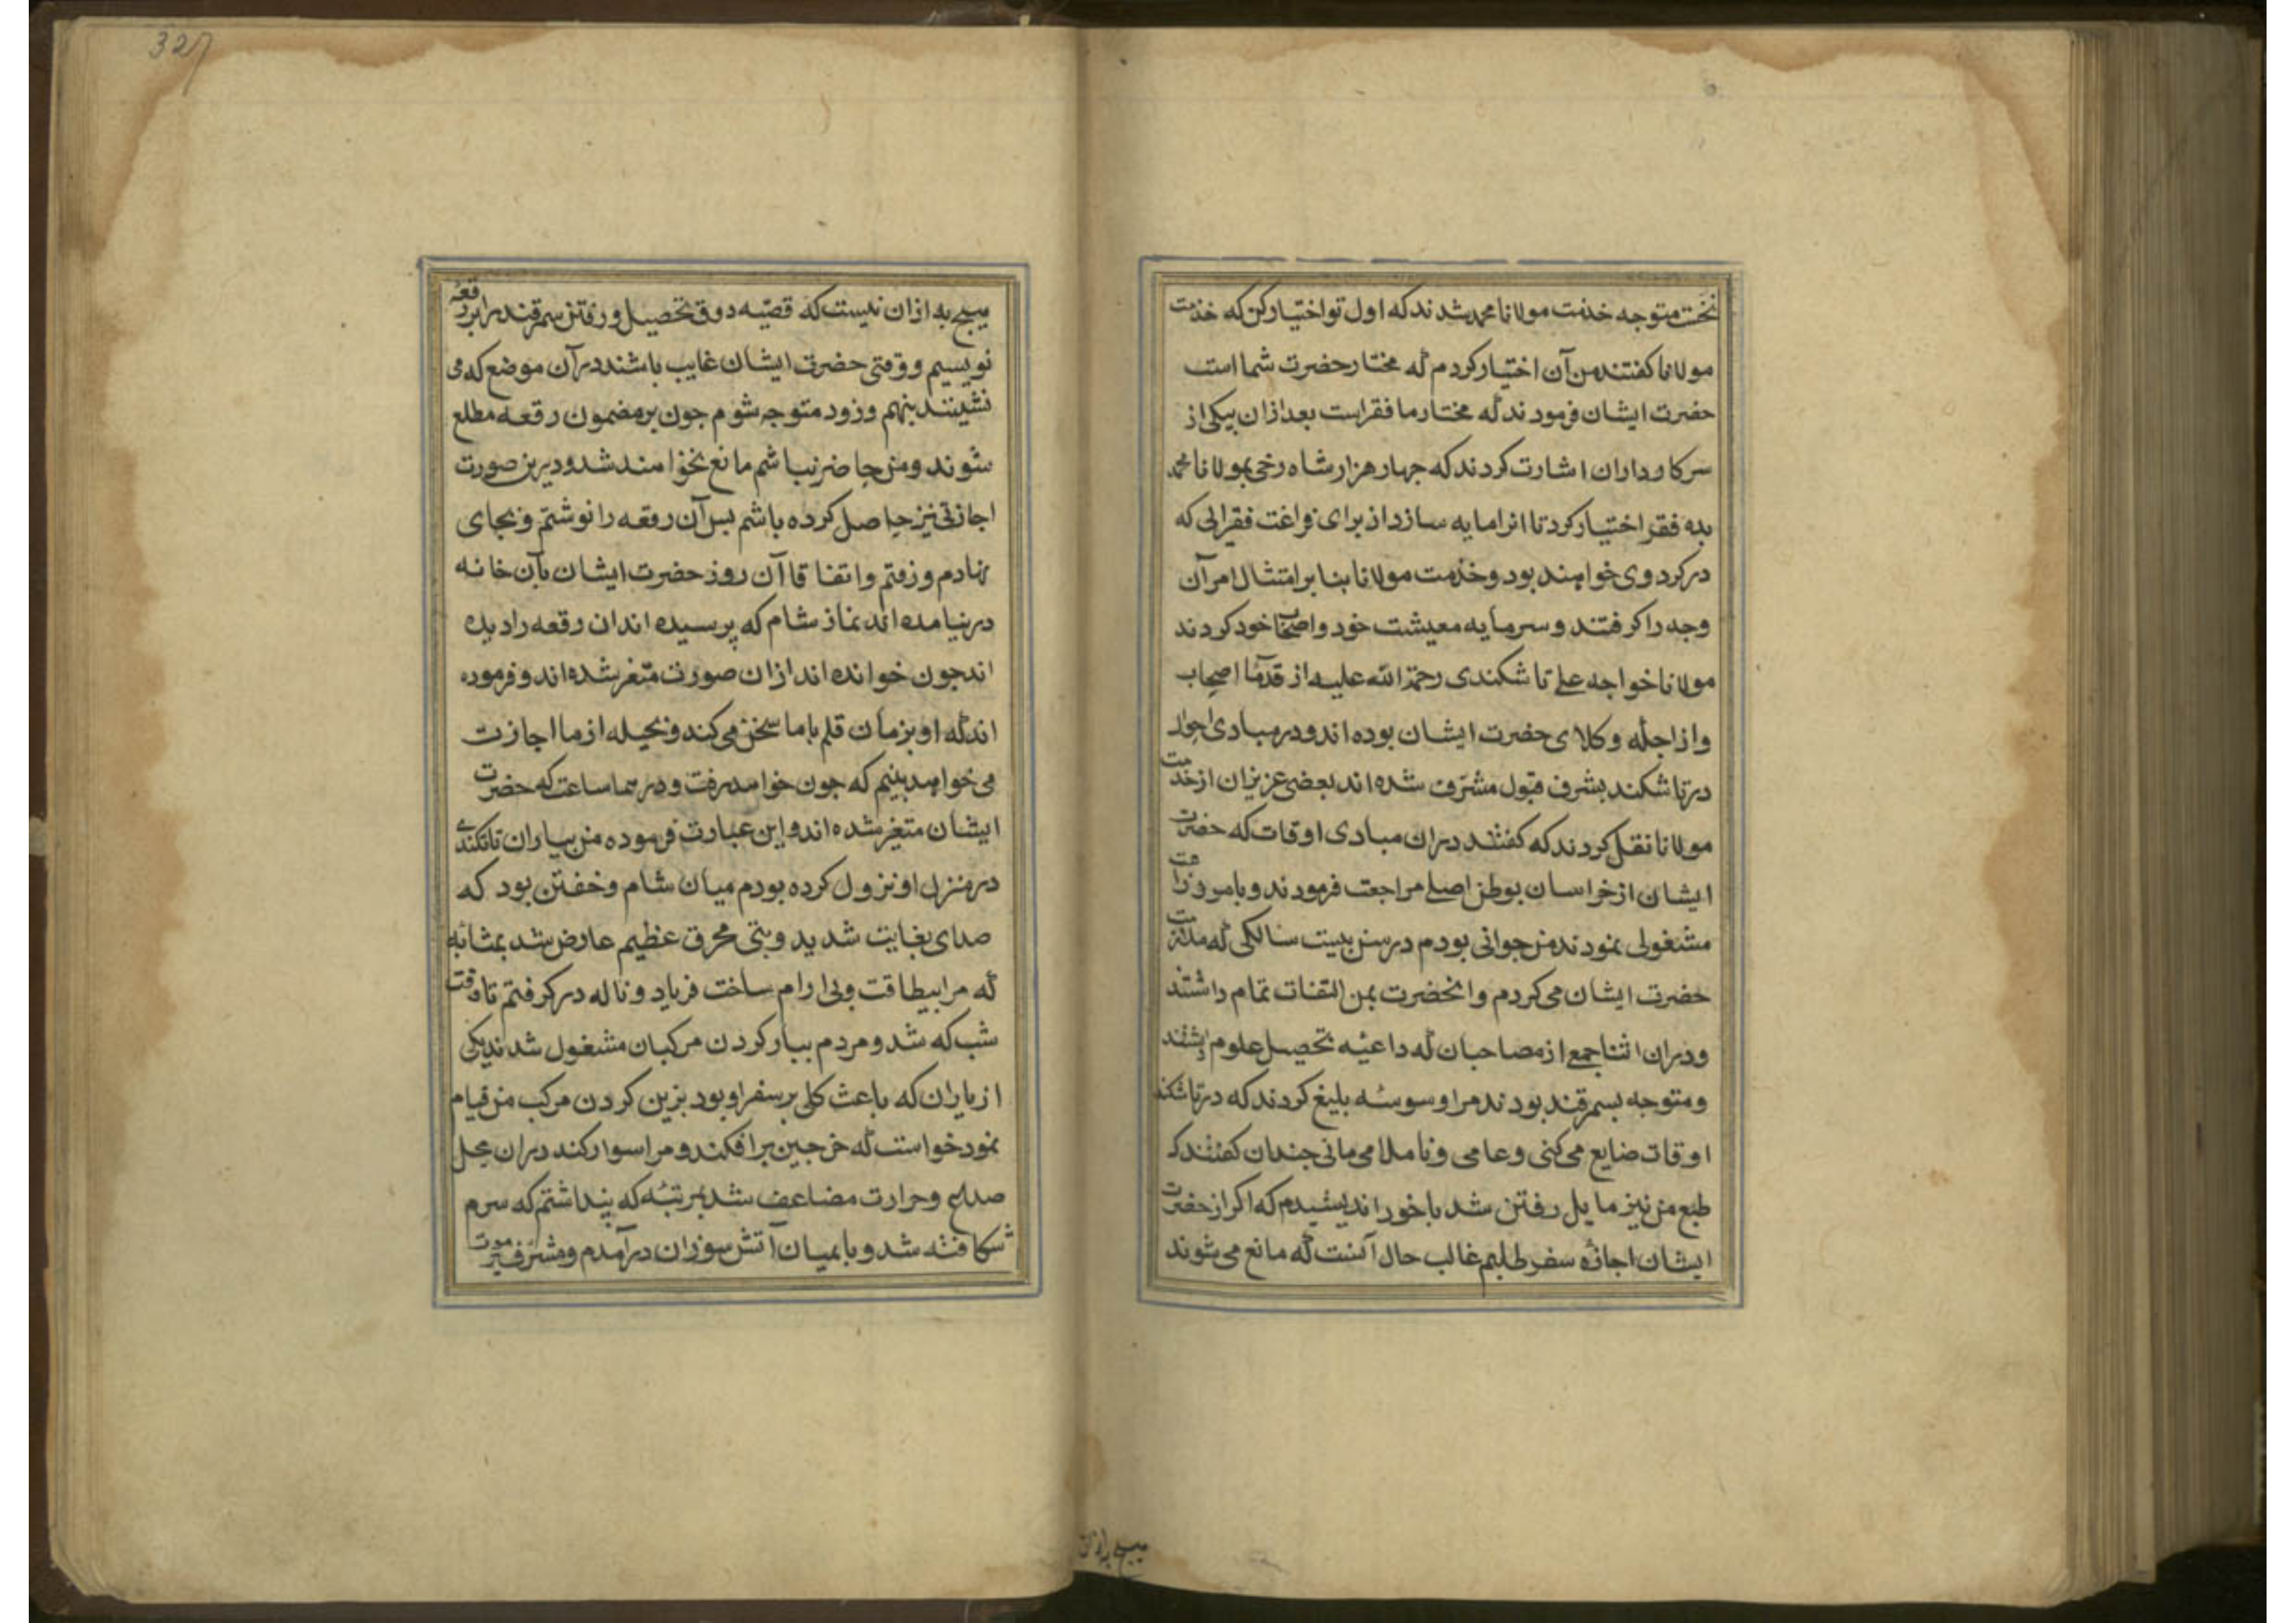 نخست متوجه خدمت مولانا محمد شدند که اول تو اختیار کن که خدمت
مولانا کفتند من آن اختیار کردم که مختار حضرت شما است
حضرت ایشان فرمودند که مختار ما فقراست بعد ازان بیکی از
سرکارداران اشارت کردند که جهار هزار شاه رخی بمولانا محمد
بده فقر اختیار کرد تا انرا مایه سازد از برای فراغت فقرائی که
در کرد وی خواهند بود و خدمت مولانا بنا بر امتثال امر آن
وجه را کرفتند و سرمایه معیشت خود و اصحاب خود کردند
مولانا خواجه علی تاشکندی رحمة الله علیه از قدمآ اصحاب
و از اجله وکلای حضرت ایشان بوده اند و در مبادی احوال
در تاشکند بشرف قبول مشرّف شده اند بعضی عزیزان از خدمت
مولانا نقل کردند که کفتند دران مبادی اوقات که حضرت
ایشان از خراسان بوطن اصلی مراجعت فرمودند و بامر زراعت
مشغولی نمودند من جوانی بودم در سن بیست سالکی که ملازمت
حضرت ایشان می کردم و انحضرت بمن التفات تمام داشتند
و دران اثنا جمعی از مصاحبان که داعیه تحصیل علوم داشتند
و متوجه بسمرقند بودند مرا وسوسه بلیغ کردند که در تاشکند
اوقات ضایع می کنی و عامی و نا ملا می مانی جندان کفتند که
طبع من نیز مایل رفتن شد با خود اندیشیدم که اکر از حضرت
ایشان اجازه سفر طلبم غالب حال آنست که مانع می شوند
هیچ به ازان نیست که قصّیه دوق تحصیل و رفتن سمرقند را بر رقعه
نویسیم و وقتی حضرت ایشان غایب باشند در آن موضع که می
نشینند بنهم و زود متوجه شوم جون بر مضمون رقعه مطلع
شوند و من حاضر نباشم مانع نخواهند شد و درین صورت
اجازتی نیز حاصل کرده باشم بس آن رقعه را نوشتم و بجای
نهادم و رفتم و اتفاقا آن روز حضرت ایشان بآن خانه
در نیامده اند نماز شام که پرسیده اند ان رقعه را دیده
اند جون خوانده اند ازان صورت متغیر شده اند و فرموده
اند که او بزمان قلم با ما سخن می کند و بحیله از ما اجازت
می خواهد ببینم که جون خواهد رفت و در هما ساعت که حضرت
ایشان متغیر شده اند و این عبارت فرموده من بیاران تاشکندی
در منزل اونزول کرده بودم میان شام و خفتن بود که
صداعی بغایت شدید و تبی محرق عظیم عارض شد بمثابه
که مرا بیطاقت و بی ارام ساخت فریاد و ناله در کرفتم تا وقت
شب که شد و مردم ببار کردن مرکبان مشغول شدند یکی
از یاران که باعث کلی بر سفر او بود بزین کردن مرکب من قیام
نمود خواست که خرجین بر افکند و مرا سوار کند دران محل
صداع و حرارت مضاعف شد بمرتبه که بنداشتم که سرم
شکافته شد و یا بمیان آتش سوزان در آمدم و مشرف بر موت
هیچ به ازان